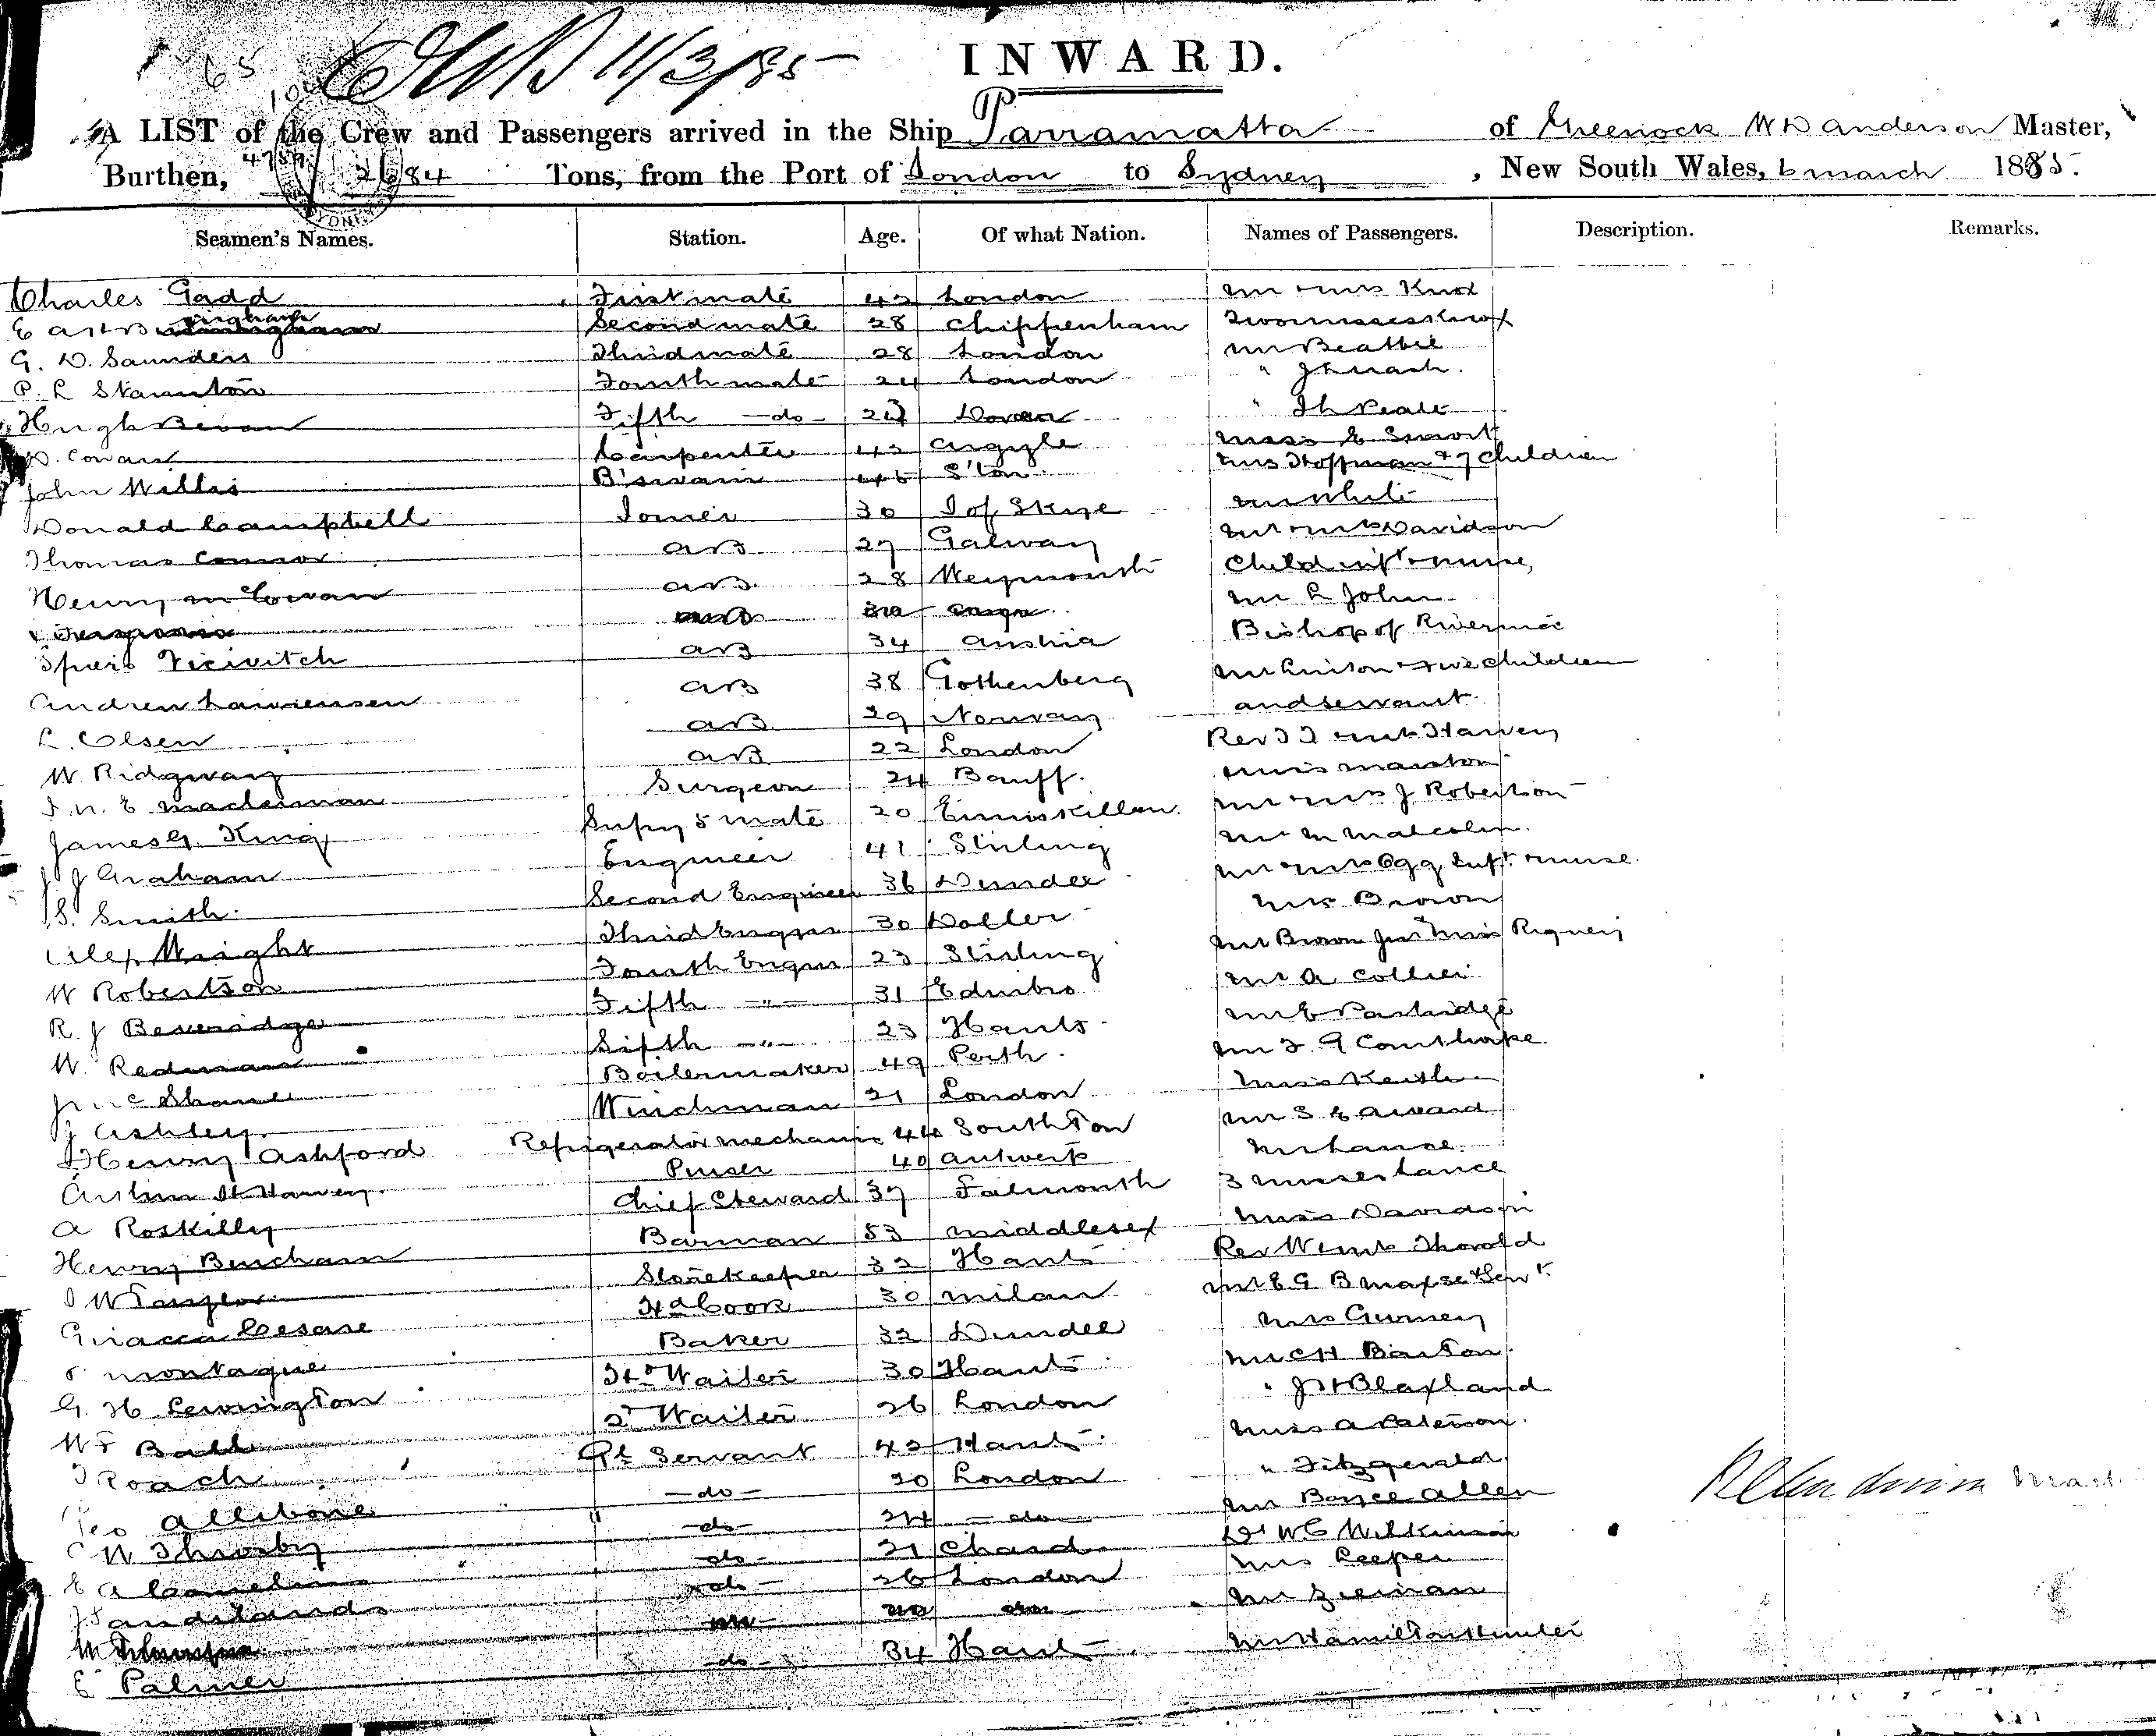 65
11/3/85
INWARD.
A LIST of the Crew and Passengers arrived in the Ship Parramatta of Greenock W D Anderson Master,
Burthen, 4759 2684 Tons, from the Port of London to Sydney, New South Wales, 6 March 1885.
Seamen's Names. Station. Age. Of what Nation. Names of Passengers. Description. Remarks.
Charles Gadd First mate 42 London Mr & Mrs Knox
Second mate 28 Chippenham Two misses Knox
G. D. Saunders Third mate 28 London Mr Beattie
P. L Staunton Fourth mate 24 London "
Hugh Bevan Fifth -do- " Peate
D. Cowan Carpenter 43 Argyle Miss E Smart
John Willis B'swain 46 S'ton Mrs Hoffman & 7 Children
Donald Campbell Joiner 30 I of Skye Mr White
Thomas Connor AB 27 Galway Mr & Mrs Davidson
Henry McCowan AB 28 Weymouth Child inft & nurse,
Mr L John
Vicivitch AB 34 Austria Bishop of Riverina
Andrew Lawrensen AB 38 Gothenberg Children
L. Olsen AB 29 Norway and servant
W. Ridgway AB 22 London Rev & Mrs Harvey
Surgeon 24 Banff. Miss Manton
James G. King Supy 5 mate 20 Enniskillen. Mr & Mrs J Robertson
J J Graham Engineer 41 Stirling Mr M Malcolm.
S. Smith. Second Engineer 36 Dundee Mr & Mrs Ogg Inft & nurse.
Alex Wright Third Engnr 30 Doller Mrs Brown
W Robertson Fourth Engnr 23 Stirling Mr Brown Junr Miss Rigney
R. J Beveridge Fifth -"- 31 Edinbro Mr A Collier
W. Redman Sixth -"- 23 Hants Mr E Partridge
J McShane Boilermaker 49 Perth Mr F. G Courthope.
J Ashley Winchman 21 London Miss Keith
Henry Ashford Refrigerator mechanic 44 SouthTon Mr S E Award
Arthur H. Harvey. Purser 40 Antwerp Mr Lance.
A Roskilly Chief Steward 37 Falmouth 3 Misses Lance
Henry Burcham Barman 53 Middlesex Miss Davidson
W Taylor Storekeeper 32 Hants Rev W & Mrs Thorold
Giacca Cesare Hd Cook 30 Milan Mr E G B Maxse & Servt
Montague Baker 32 Dundee Mrs Gurney
G. H Lewington Hd Waiter 30 Hants Mr CH Barton
W F Ball 2d Waiter 26 London " J H Blaxland
T Roach Gl Servant 42 Hants Miss A Paterson
Geo Allibone -do- 20 London " Fitzgerald
W Throsby -do- 24 -do- Mr Boyce Allen
E A -do- 21 Chard Dr W. C Wilkinson
Sandilands -do- 26 London Mrs Leeper
Mr Zieman
E Palmer -do- 34 Hants Mr Hamilton Hunter